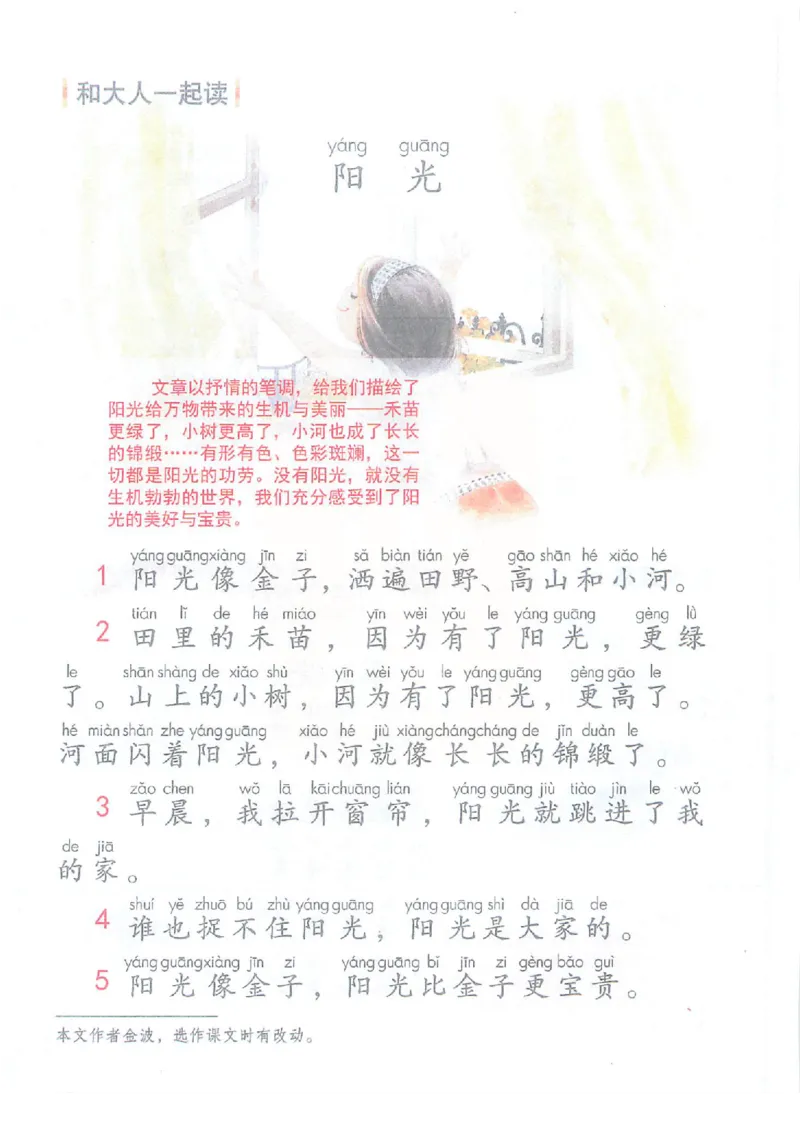 和大人一起读
yáng guāng
阳 光
文章以抒情的笔调，给我们描绘了
阳光给万物带来的生机与美丽——禾苗
更绿了，小树更高了，小河也成了长长
的锦缎……有形有色、色彩斑斓，这一
切都是阳光的功劳。没有阳光，就没有
生机勃勃的世界，我们充分感受到了阳
光的美好与宝贵。
yáng guāng xiàng jīn zi sǎ biàn tián yě gāo shān hé xiǎo hé
1 阳光像金子，洒遍田野、高山和小河。
tián lǐ de hé miáo yīn wèi yǒu le yáng guāng gèng lǜ
2 田里的禾苗，因为有了阳光，更绿
le shān shàng de xiǎo shù yīn wèi yǒu le yáng guāng gèng gāo le
了。山上的小树，因为有了阳光，更高了。
hé miàn shǎn zhe yáng guāng xiǎo hé jiù xiàng cháng cháng de jǐn duàn le
河面闪着阳光，小河就像长长的锦缎了。
zǎo chen wǒ lā kāi chuāng lián yáng guāng jiù tiào jìn le wǒ
3 早晨，我拉开窗帘，阳光就跳进了我
de jiā
的家。
shuí yě zhuō bú zhù yáng guāng yáng guāng shì dà jiā de
4 谁也捉不住阳光，阳光是大家的。
yáng guāng xiàng jīn zi yáng guāng bǐ jīn zi gèng bǎo guì
5 阳光像金子，阳光比金子更宝贵。
本文作者金波，选作课文时有改动。